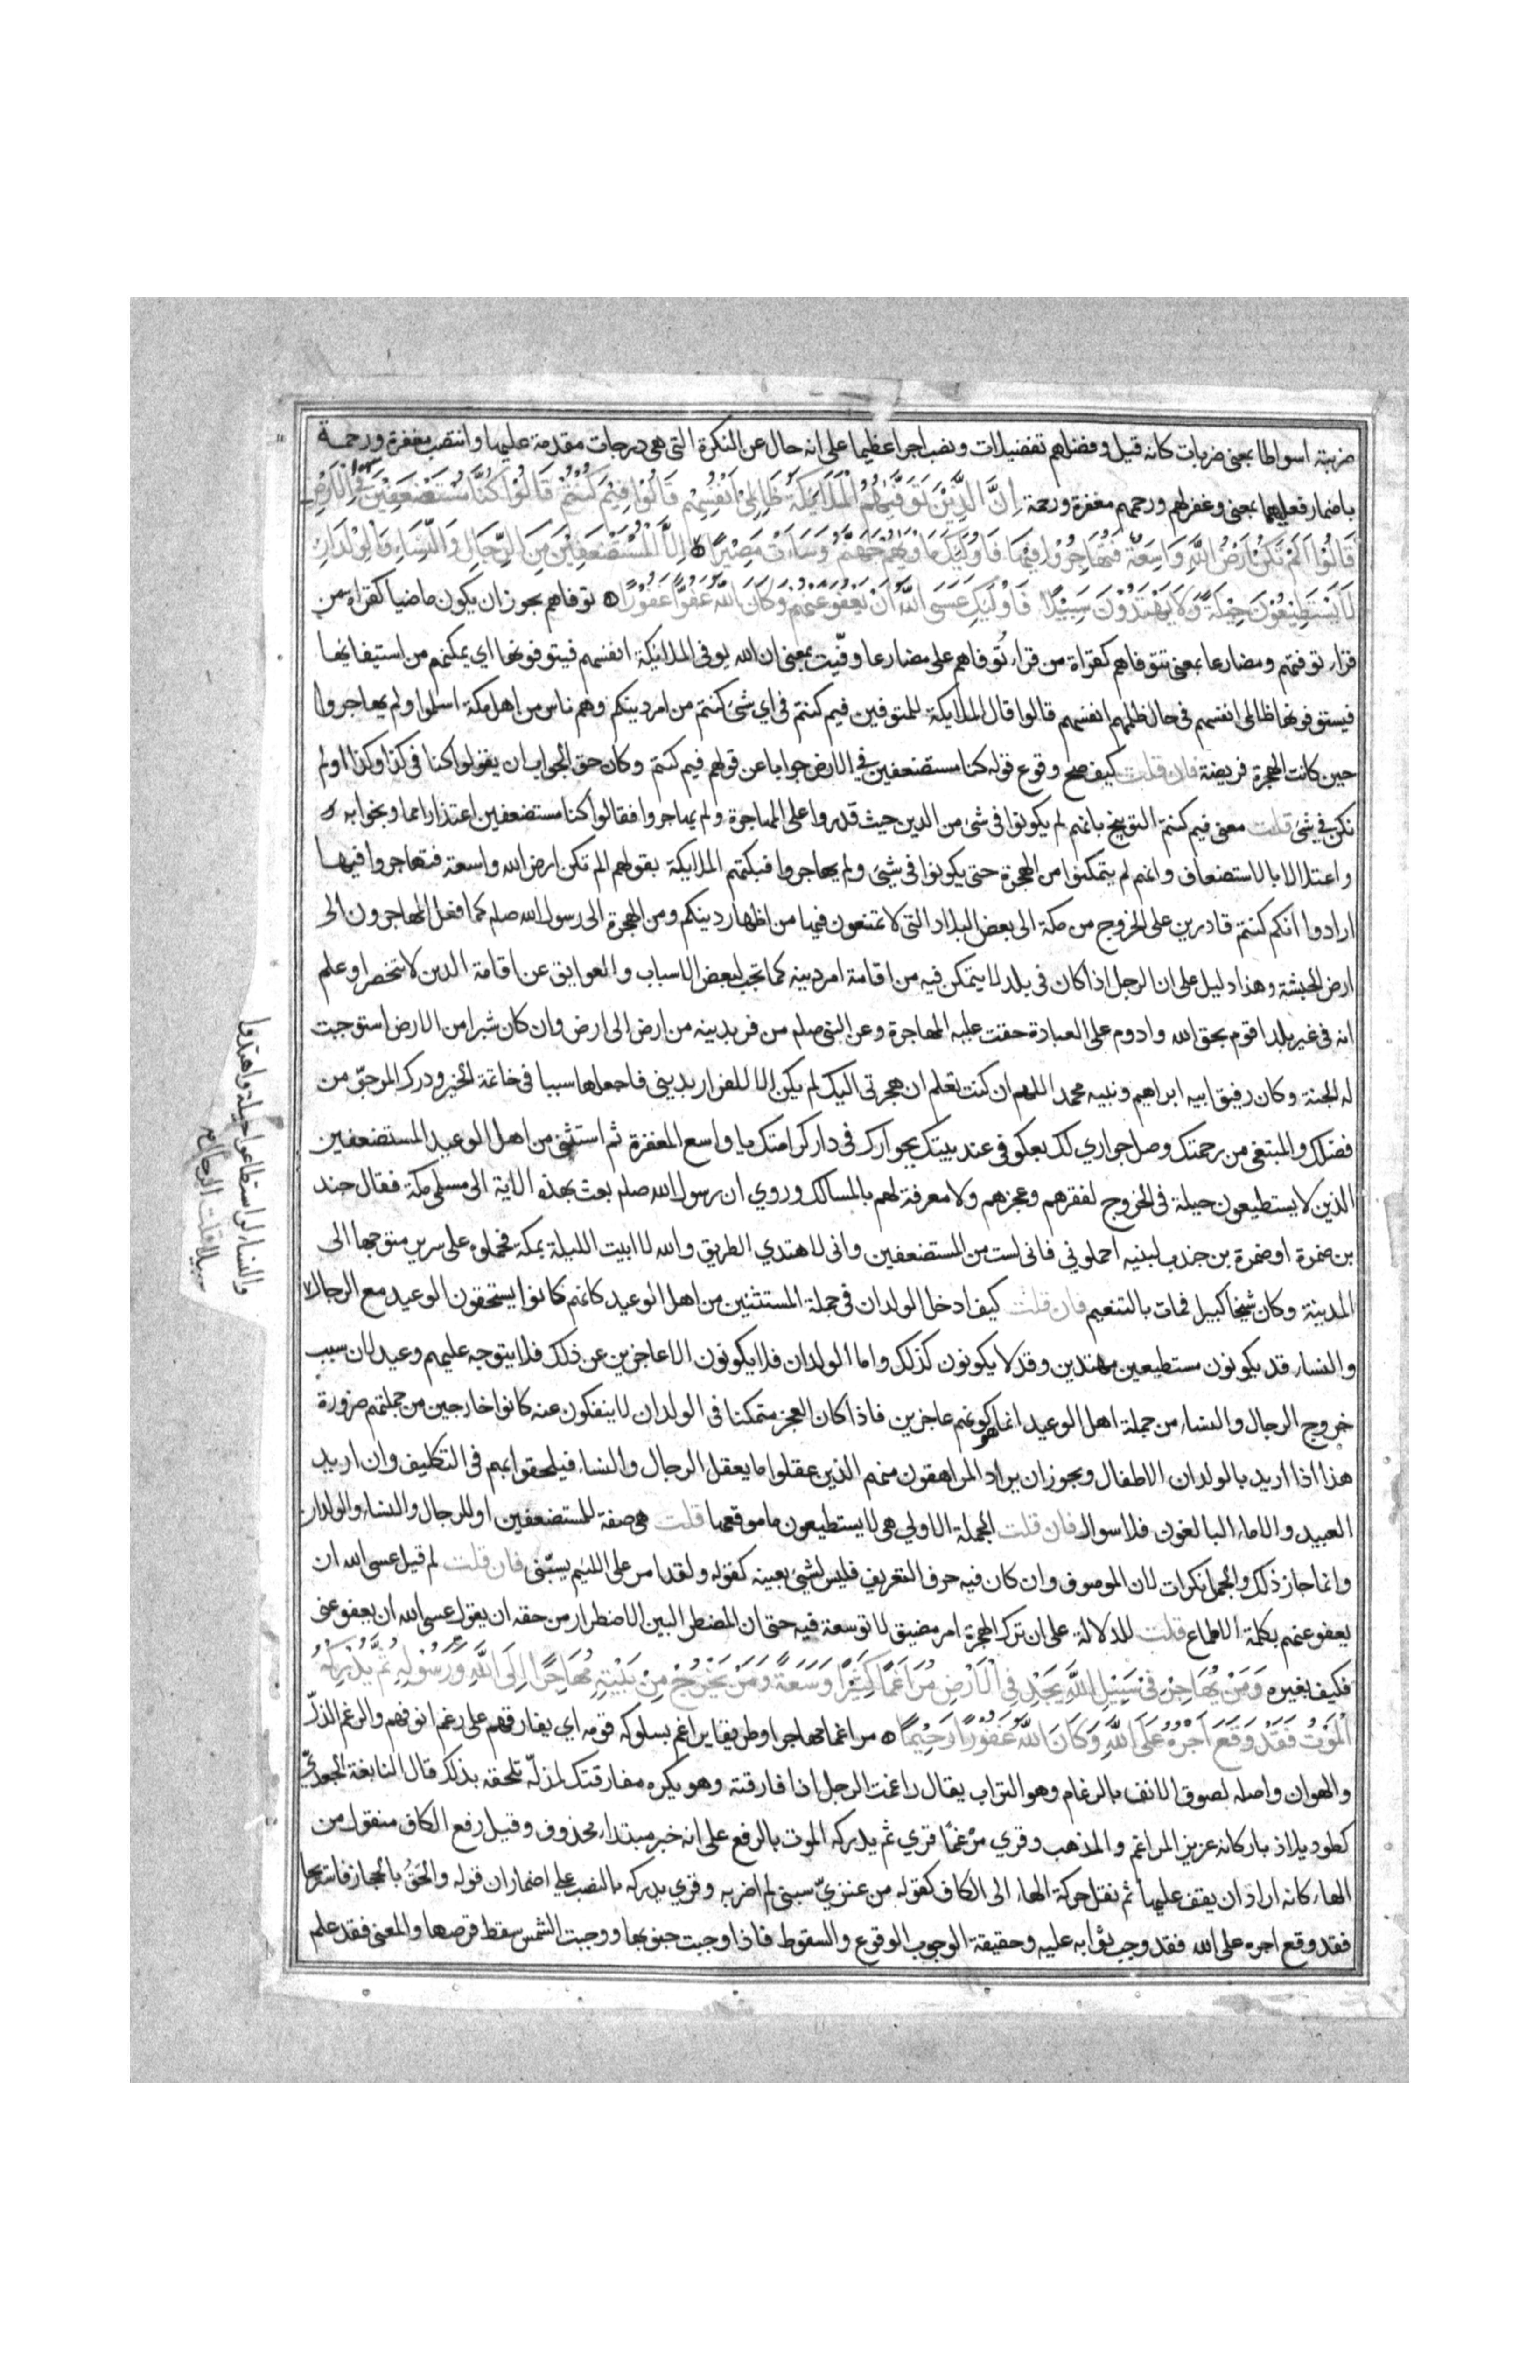 ضربته اسواطا بمعنى ضربات كانه قيل وفضلهم تفضيلات ونصب اجرا عظيما على انه حال عن النكرة التى هى درجات مقدمة عليها وانتصب مغفرة ورحمة
باضمار فعليهما بمعنى وغفر لهم ورحمهم مغفرة ورحمة إِنَّ الَّذِيْنَ تَوَفَّيٰهُمُ الْمَلَايِكَةُ ظَالِمِيْ اَنْفُسِهِمْ قَالُوْا فِيْمَ كُنْتُمْ قَالُوْا كُنَّا مُسْتَضْعَفِيْنَ فِي الْاَرْضِ
قَالُوْا اَلَمْ تَكُنْ اَرْضُ اللّٰهِ وَاسِعَةً فَتُهَاجِرُوْا فِيْهَا فَاُولٰئِكَ مَاْوٰيهُمْ جَهَنَّمُ وَسَاءَتْ مَصِيْرًا اِلَّا الْمُسْتَضْعَفِيْنَ مِنَ الرِّجَالِ وَالنِّسَاءِ وَالْوِلْدَانِ
لَا يَسْتَطِيْعُوْنَ حِيْلَةً وَلَا يَهْتَدُوْنَ سَبِيْلًا فَاُولٰئِكَ عَسَى اللّٰهُ اَنْ يَعْفُوَ عَنْهُمْ وَكَانَ اللّٰهُ عَفُوًّا غَفُوْرًا توفاهم يجوز ان يكون ماضيا كقراءة من
قراء توفتهم ومضارعا بمعنى تتوفاهم كقراة من قراء تُوفاهم على مضارع وفّيت بمعنى ان الله يوفى الملايكة انفسهم فيتوفونها اي يمكنهم من استيفائها
فيستوفونها ظالمى انفسهم فى حال ظلمهم انفسهم قالوا قال الملايكة للمتوفين فيم كنتم فى اي شئ كنتم من امر دينكم وهم ناس من اهل مكة اسلموا ولم يهاجروا
حين كانت الهجرة فريضة فان قلت كيف صح وقوع قوله كنا مستضعفين في الارض جوابا عن قولهم فيم كنتم وكان حق الجواب ان يقولوا كنا فى كذا وكذا او لم
نكن في شئ قلت معنى فيم كنتم التوبيخ بانهم لم يكونوا فى شئ من الدين حيث قدروا على المهاجرة ولم يهاجروا فقالوا كنا مستضعفين اعتذارا مما وبخوا به
واعتلالا بالاستضعاف وانهم لم يتمكنوا من الهجرة حتى يكونوا فى شيئ ولم يهاجروا فبكتهم الملايكة بقولهم الم تكن ارض الله واسعة فتهاجروا فيها
ارادوا انكم كنتم قادرين على الخروج من مكة الى بعض البلاد التى لا تمنعون فيها من اظهار دينكم ومن الهجرة الى رسول الله صلم كما فعل المهاجرون الى
ارض الحبشة وهذا دليل على ان الرجل اذا كان فى بلد لا يتمكن فيه من اقامة امر دينه كما تجب لبعض الاسباب والعوايق عن اقامة الدين لا تنحصر او علم
انه فى غير بلده اقوم بحق الله وادوم على العبادة حقت عليه المهاجرة وعن النبى صلم من فر بدينه من ارض الى ارض وان كان شبرا من الارض استوجبت
له الجنة وكان رفيق ابيه ابراهيم ونبيه محمد اللهم ان كنت تعلم ان هجرتى اليك لم يكن الا للفرار بدينى فاجعلها سببا فى خاتمة الخير ودرك المرجوّ من
فضلك والمبتغى من رحمتك وصل جواري لك بعكوفى عند بيتك بجوارك فى دار كرامتك يا واسع المغفرة ثم استثنى من اهل الوعيد المستضعفين
الذين لا يستطيعون حيلة فى الخروج لفقرهم وعجزهم ولا معرفة لهم بالمسالك وروي ان رسول الله صلم بعث بهذه الاية الى مسلمى مكة فقال جند
بن ضمرة او ضمرة بن جندب لبنيه احملونى فانى لست من المستضعفين وانى لاهتدي الطريق والله لا ابيت الليلة بمكة فحملوه على سرير متوجها الى
المدينة وكان شيخا كبيرا فمات بالتنعيم فان قلت كيف ادخل الولدان فى جملة المستثنين من اهل الوعيد كانهم كانوا يستحقون الوعيد مع الرجال
والنساء قد يكونون مستطيعين مهتدين وقد لا يكونون كذلك واما الولدان فلا يكونون الا عاجزين عن ذلك فلا يتوجه عليهم وعيد لان سبب
خروج الرجال والنساء من جملة اهل الوعيد انما هو كونهم عاجزين فاذا كان العجز متمكنا فى الولدان لا ينفكون عنه كانوا خارجين من جملتهم ضرورة
هذا اذا اريد بالولدان الاطفال ويجوز ان يراد المراهقون منهم الذين عقلوا ما يعقل الرجال والنساء فيلحقوا بهم فى التكليف وان اريد
العبيد والاماء البالغون فلا سوال فان قلت الجملة الاولى هى لا يستطيعون ما موقعها قلت هى صفة للمستضعفين او للرجال والنساء والولدان
وانما جاز ذلك والجمل نكرات لان الموصوف وان كان فيه حرف التعريف فليس لشيئ بعينه كقوله ولقد امر على اللئيم يسبّنى فان قلت لم قيل عسى الله ان
يعفو عنهم بكلمة الاطماع قلت للدلالة على ان ترك الهجرة امر مضيق لا توسعة فيه حتى ان المضطر البين الاضطرار من حقه ان يقول عسى الله ان يعفو عنى
فكيف بغيره وَمَنْ يُهَاجِرْ فِىْ سَبِيْلِ اللّٰهِ يَجِدْ فِى الْاَرْضِ مُرَاغَمًا كَثِيْرًا وَسَعَةً وَمَنْ يَخْرُجْ مِنْ بَيْتِهٖ مُهَاجِرًا اِلَى اللّٰهِ وَرَسُوْلِهٖ ثُمَّ يُدْرِكْهُ
الْمَوْتُ فَقَدْ وَقَعَ اَجْرُهٗ عَلَى اللّٰهِ وَكَانَ اللّٰهُ غَفُوْرًا رَحِيْمًا مراغما مهاجرا وطريقا يراغم بسلوكه قومه اي يفارقهم على رغم انوفهم والرغم الذلّ
والهوان واصله لصوق الانف بالرغام وهو التراب يقال راغمت الرجل اذا فارقته وهو يكره مفارقتك لمذلّة تلحقه بذلك قال النابغة الجعديّ
كطود يلاذ باركانه عزيز المراغم والمذهب وقري مَرْغمًا قري ثم يدركه الموت بالرفع على انه خبر مبتداء محذوف وقيل رفع الكاف منقول من
الهاء كانه اراد ان يقف عليها ثم نقل حركة الهاء الى الكاف كقوله من عنزيّ سبنى لم اضربه وقري يدركه بالنصب على اضمار ان قوله والحق بالحجاز فاستريحا
فقد وقع اجره على الله فقد وجب ثوابه عليه وحقيقة الوجوب الوقوع والسقوط فاذا وجبت جنوبها ووجبت الشمس سقط قرصها والمعنى فقد علم
والنساء لو استطاعوا حيلة واهتدوا
سبيلا قلت الرجال